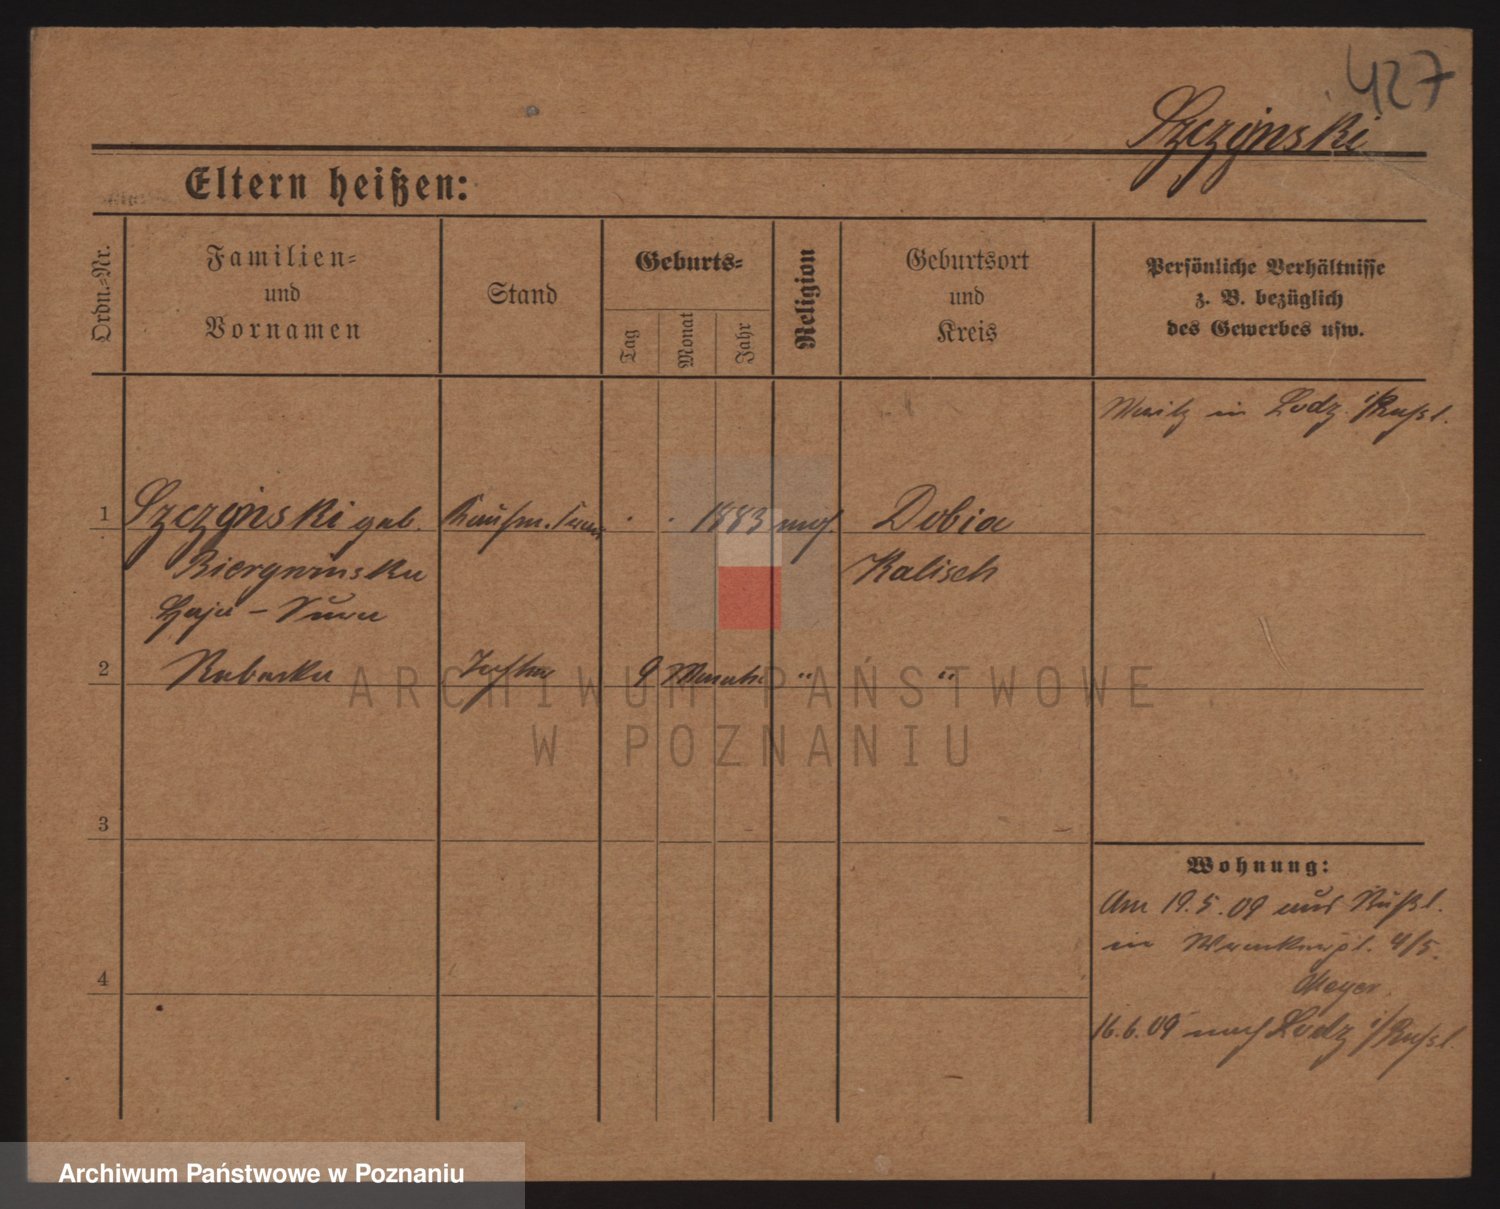 427
Szczÿnski
Eltern heißen:
Ordn.-Nr.
Familien-
und
Vornamen
Stand
Geburts-
Tag
Monat
Jahr
Religion
Geburtsort
und
Kreis
Persönliche Verhältnisse
z. B. bezüglich
des Gewerbes usw.
in Lodz i/Rußl.
1 Szczÿnski geb. Kaufm. frau 1883 mos. Dobia
Kalisch
2 Tochter 9 Monate " "
3
4
Wohnung:
Am 19.5.09 aus Rußl.
in Wronkerpl. 4/5.
Meyer.
16.6.09 nach Lodz i/Rußl.
ARCHIWUM PAŃSTWOWE
W POZNANIU
Archiwum Państwowe w Poznaniu